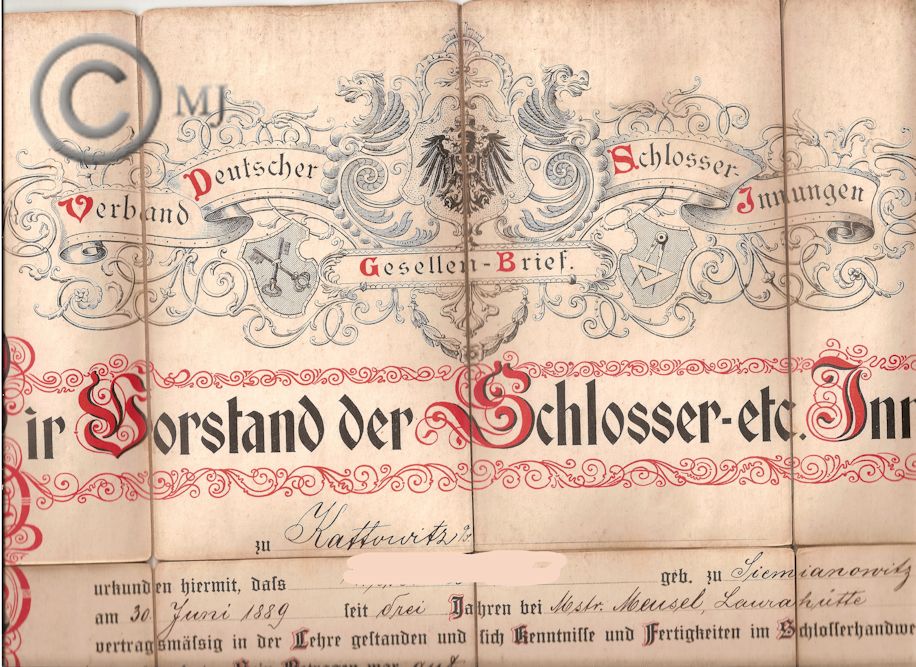 © MJ
Verband Deutscher Schlosser-Innungen
Gesellen-Brief.
ir Vorstand der Schlosser-etc. Inn
zu Kattowitz
urkunden hiermit, dass geb. zu Siemianowitz
am 30 Juni 1889 seit drei Jahren bei Mstr. Meusel, Laurahütte
vertragsmässig in der Lehre gestanden und sich Kenntnisse und Fertigkeiten im Schlosserhandwe
Betragen war gut